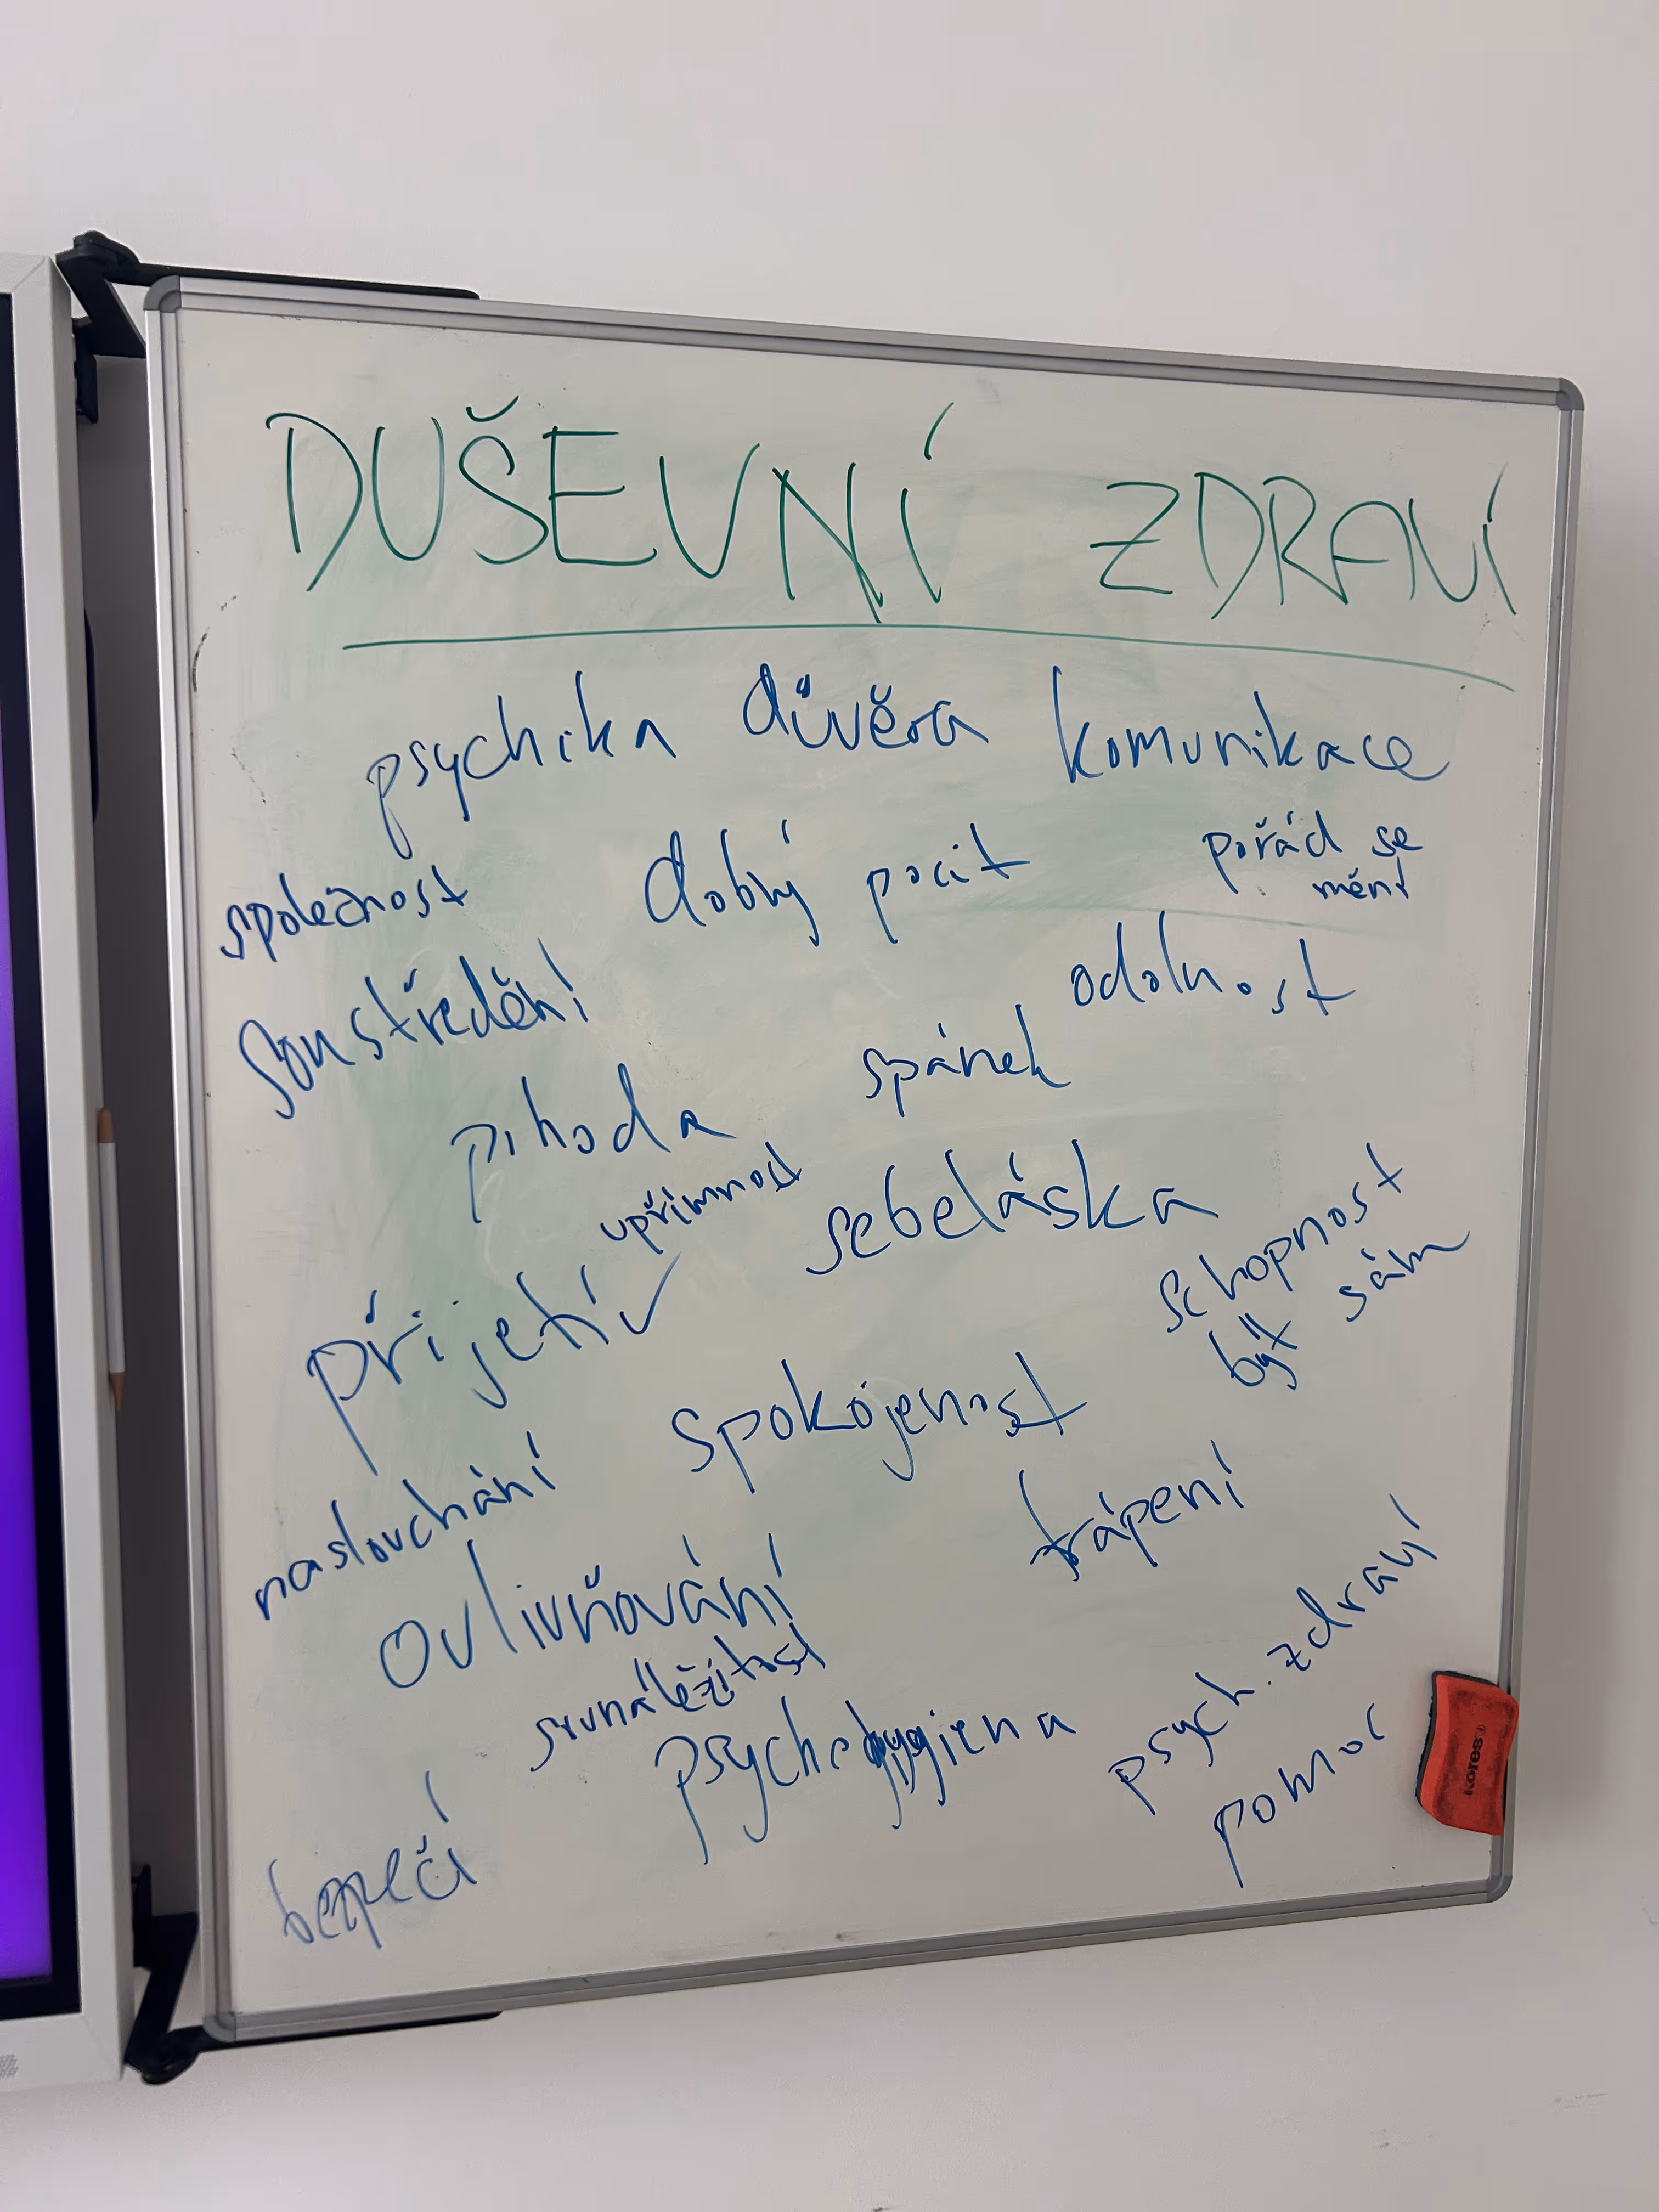 DUŠEVNÍ ZDRAVÍ
psychika důvěra komunikace
společnost dobrý pocit pořád se
mění
soustředění odolnost
spánek
pohoda
upřímnost sebeláska
schopnost
být sám
přijetí ✓
spokojenost
naslouchání
trápení
ovlivňování
sounáležitost
psychohygiena
psych. zdraví
pomoc
bezpečí
Kores®